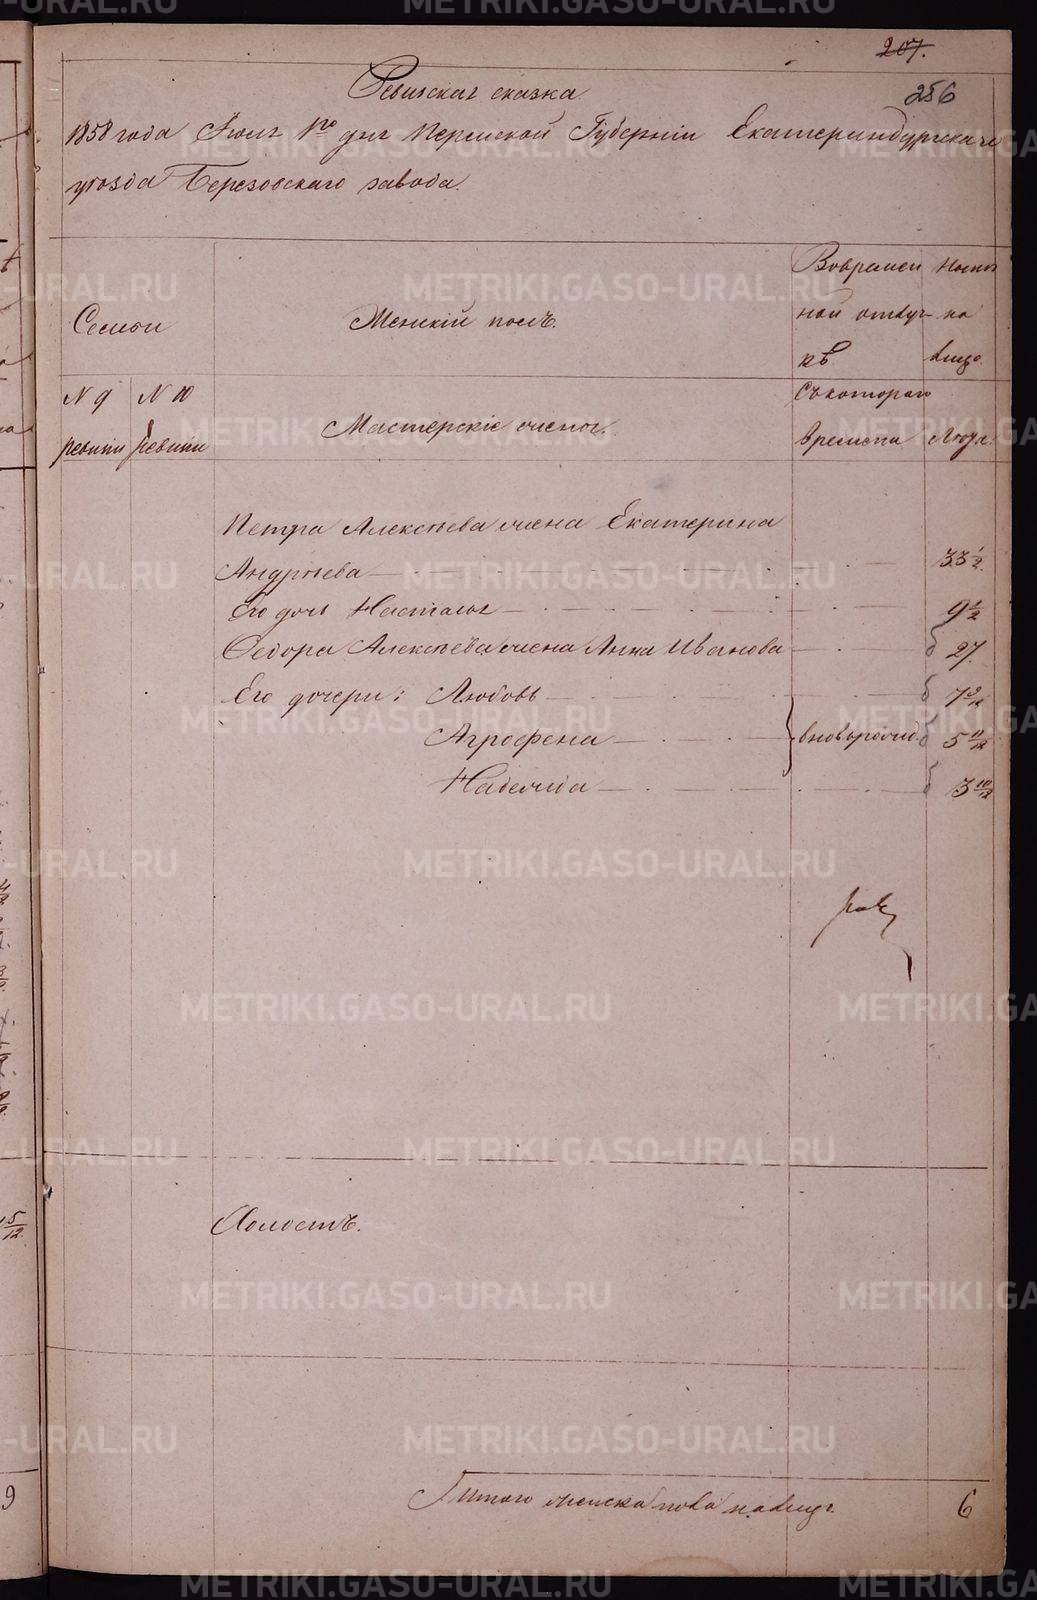 207.
256
Ревижская сказка
1858 года Июля 1го дня Пермской Губерніи Екатеринбургскаго
уѣзда Березовскаго завода.
Семьи
Женскій полъ.
Во времен
ной отлуч
кѣ
На ли
цо.
N 9
ревизіи
N 10
ревизіи
Мастерскіе жены.
Съ котораго
времени
Лѣта.
Петра Алексѣева жена Екатерина
Андреева 33 1/2
Его дочь Настасья 9 1/2
Федора Алексѣева жена Анна Иванова 27.
Его дочери: Любовь 7 9/12
Агрофена 5 11/12
вновьрожд.
Надежда 3 10/12
Холостъ.
Итого женска пола на лицо. 6
METRIKI.GASO-URAL.RU